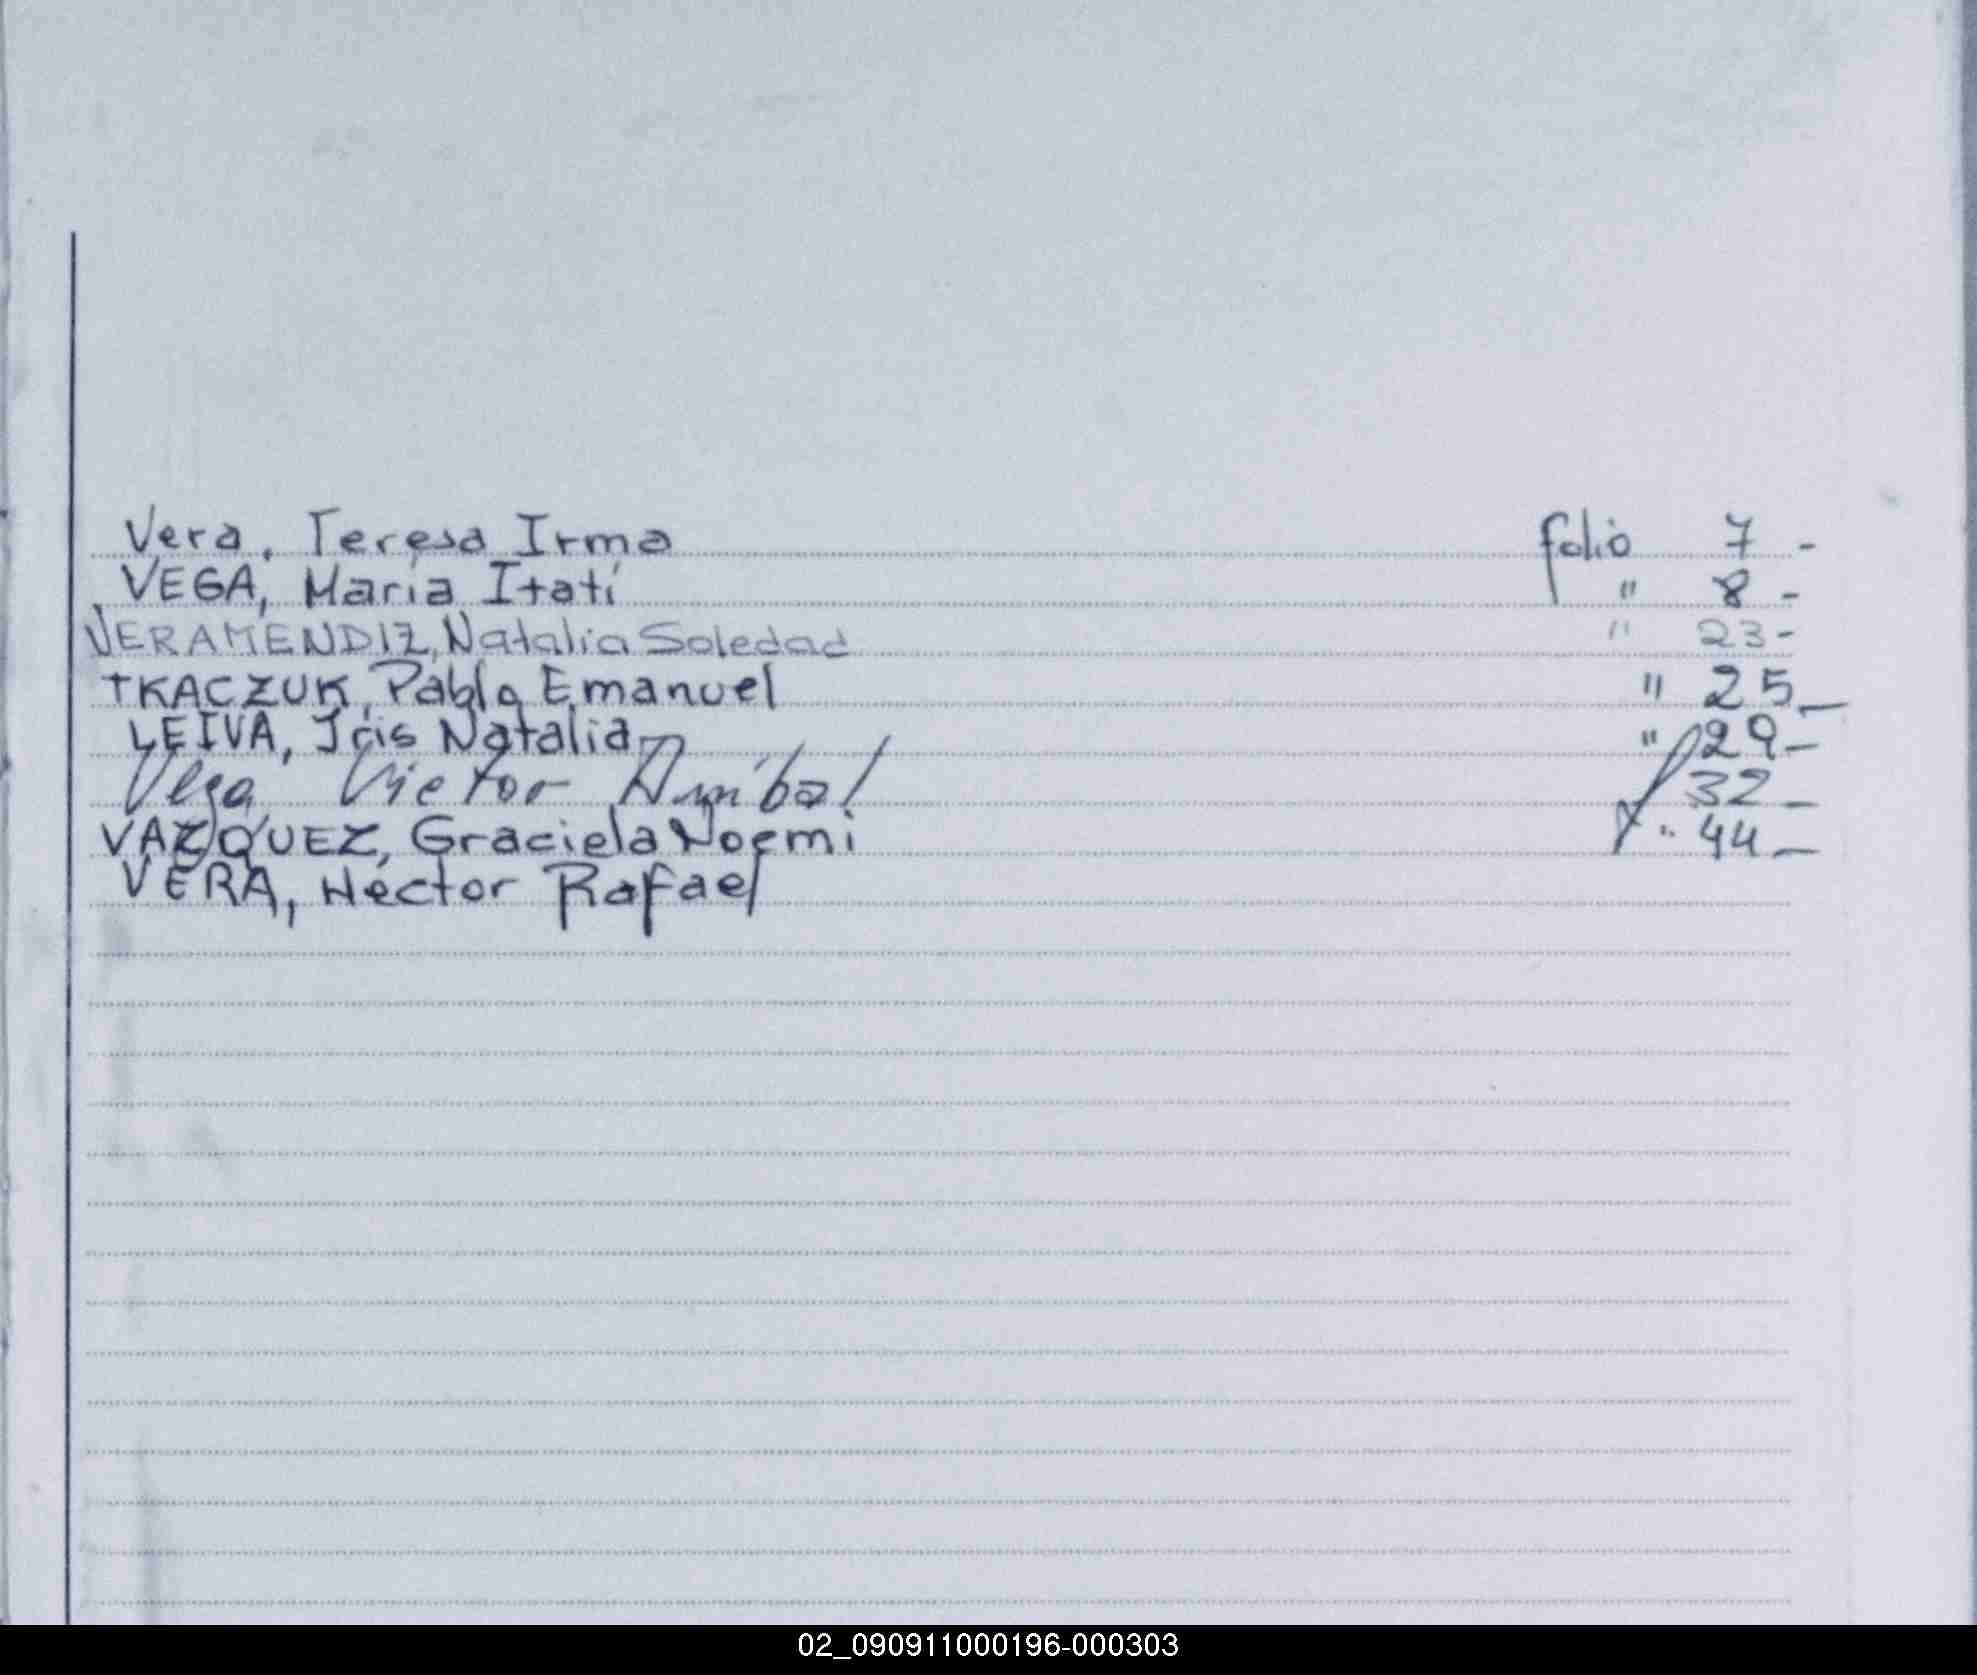 Vera, Teresa Irma folio 7 -
VEGA, María Itatí " 8 -
VERAMENDIZ, Natalia Soledad " 23 -
TKACZUK, Pablo Emanuel " 25 _
LEIVA, Iris Natalia " 29 _
Vega Victor Anibal f 32 _
VAZQUEZ, Graciela Noemi " 44 _
VERA, Hector Rafael
02_090911000196-000303